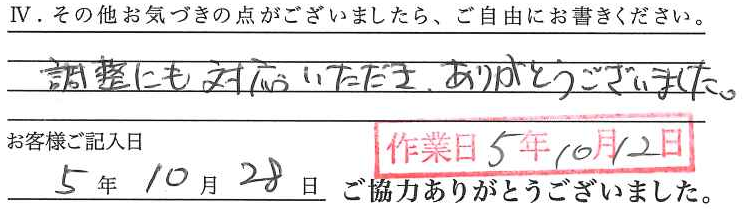 Ⅳ．その他お気づきの点がございましたら、ご自由にお書きください。
調整にも対応いただき、ありがとうございました。
お客様ご記入日
作業日 5年10月12日
5年10月28日
ご協力ありがとうございました。